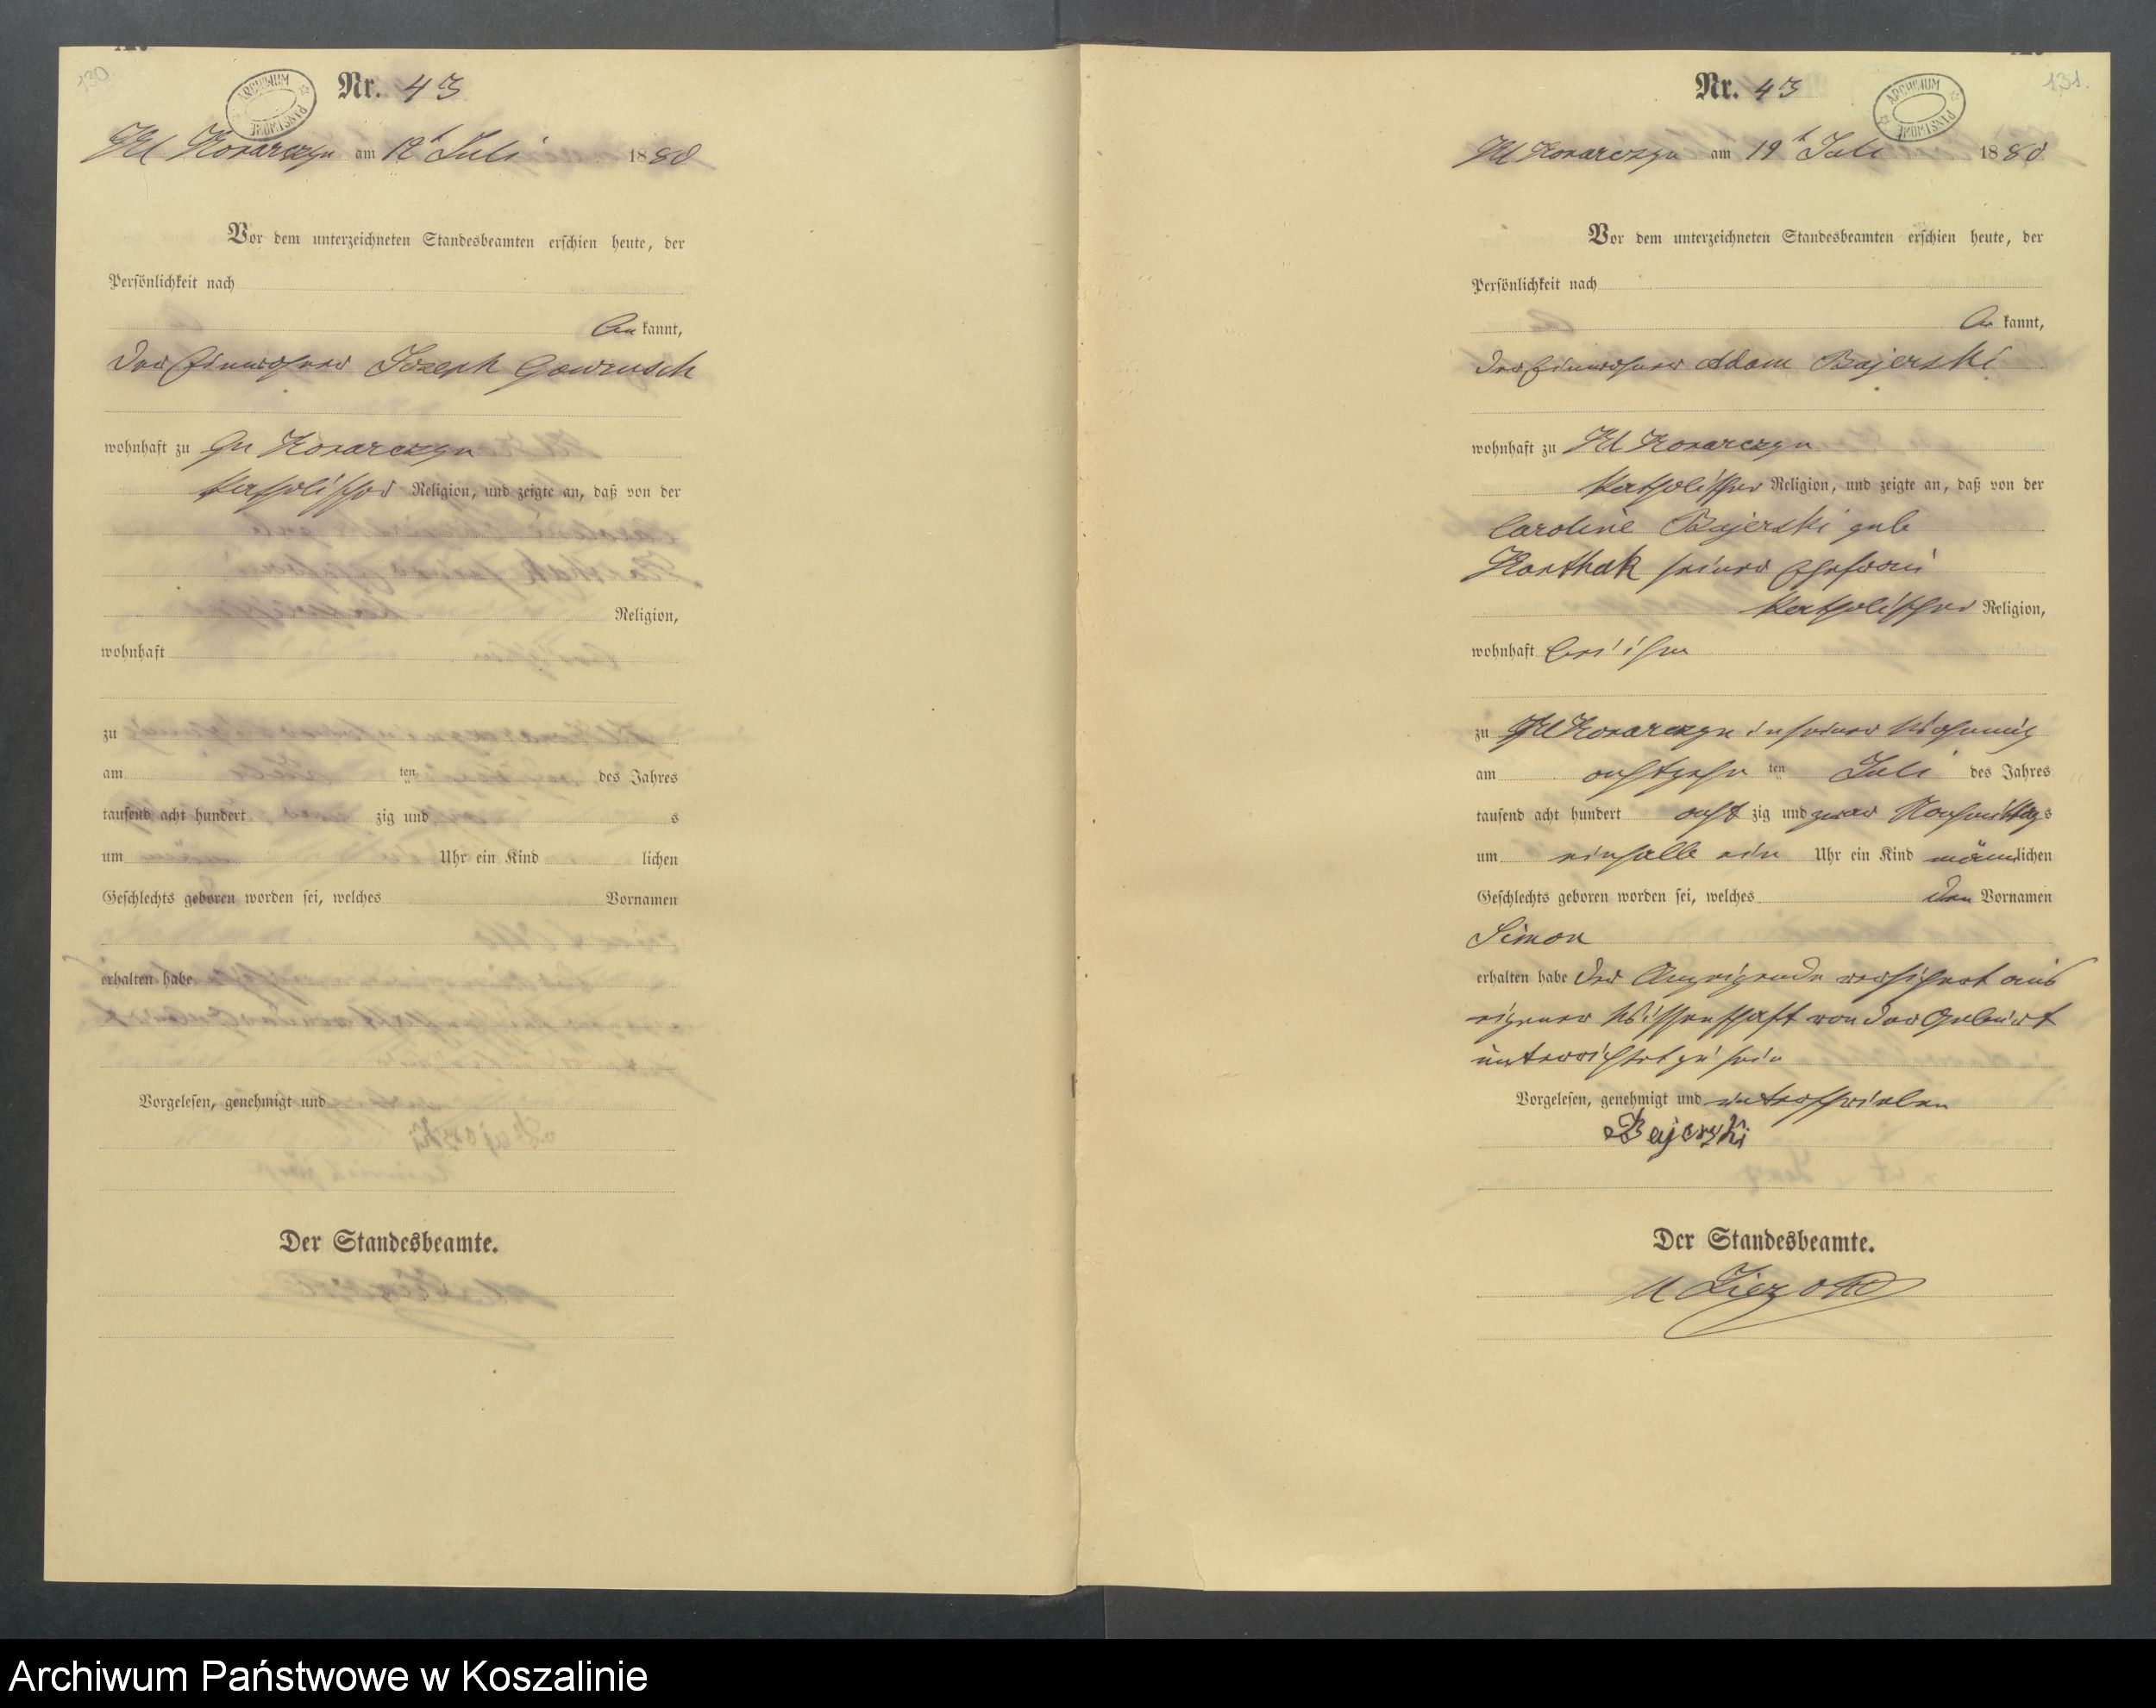 130
ARCHIWUM PAŃSTWOWE
Nr. 43
Kl Konarczyn am 12t Juli 1880
Vor dem unterzeichneten Standesbeamten erschien heute, der
Persönlichkeit nach
be kannt,
der Einwohner Joseph
wohnhaft zu Gr Konarczyn
katholischer Religion, und zeigte an, daß von der
Religion,
wohnhaft
zu
am ten des Jahres
tausend acht hundert zig und s
um Uhr ein Kind lichen
Geschlechts geboren worden sei, welches Vornamen
erhalten habe
Vorgelesen, genehmigt und
Der Standesbeamte.
131.
ARCHIWUM PAŃSTWOWE
Nr. 43
Kl Konarczyn am 19t Juli 1880
Vor dem unterzeichneten Standesbeamten erschien heute, der
Persönlichkeit nach
be kannt,
der Einwohner Adam Bajerski
wohnhaft zu Kl Konarczyn
katholischer Religion, und zeigte an, daß von der
Caroline Bajerski geb
Korthak seiner Ehefrau
katholischer Religion,
wohnhaft bei ihm
zu Kl Konarczyn in seiner Wohnung
am achtzehn ten Juli des Jahres
tausend acht hundert acht zig und zwar Nachmittags
um einhalb ein Uhr ein Kind männlichen
Geschlechts geboren worden sei, welches den Vornamen
Simon
erhalten habe der Anzeigende versichert aus
eigener Wissenschaft von der Geburt
unterrichtet zu sein
Vorgelesen, genehmigt und unterschrieben
Bajerski
Der Standesbeamte.
Archiwum Państwowe w Koszalinie